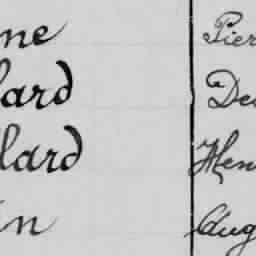 ne Pier
lard De
llard Hen
in Aug